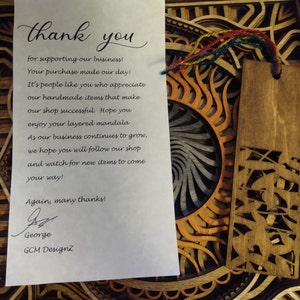 thank you
for supporting our business!
Your purchase made our day!
It's people like you who appreciate
our handmade items that make
our shop successful. Hope you
enjoy your layered mandala.
As our business continues to grow,
we hope you will follow our shop
and watch for new items to come
your way!
Again, many thanks!
George
GCM DesignZ